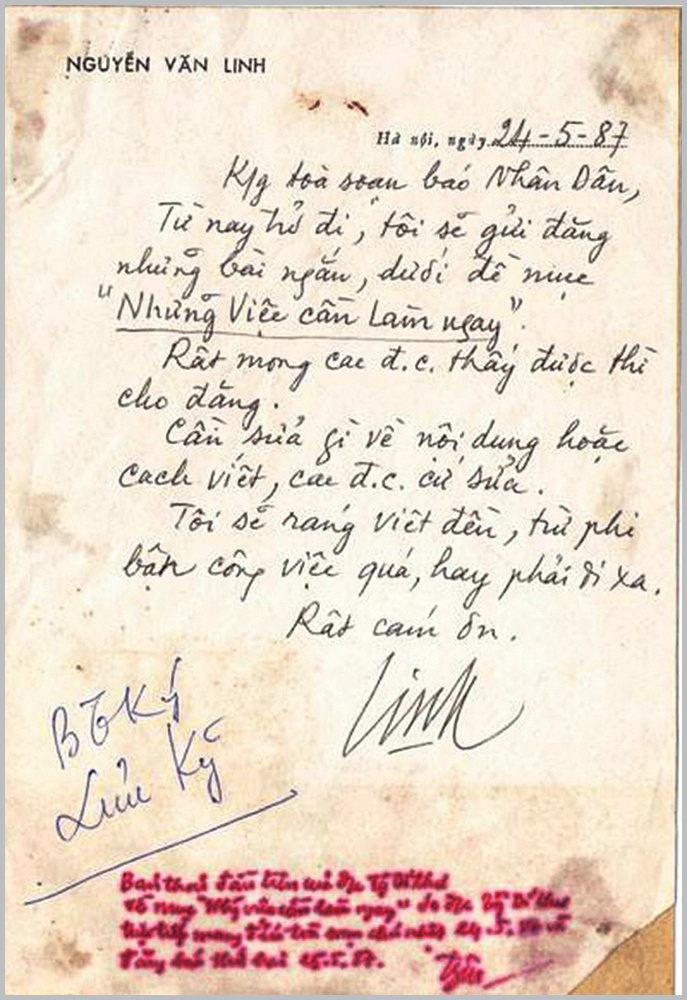 NGUYỄN VĂN LINH
Hà nội, ngày 24-5-87
K/g toà soạn báo Nhân Dân,
Từ nay trở đi, tôi sẽ gửi đăng
những bài ngắn, dưới đề mục
"Những Việc cần Làm ngay".
Rất mong các đ.c. thấy được thì
cho đăng.
Cần sửa gì về nội dung hoặc
cách viết, các đ.c. cứ sửa.
Tôi sẽ ráng viết đều, trừ phi
bận công việc quá, hay phải đi xa.
Rất cám ơn.
Linh
Lưu Kỹ
Bản thảo đầu tiên của
24.5.
đăng 25.5.87.